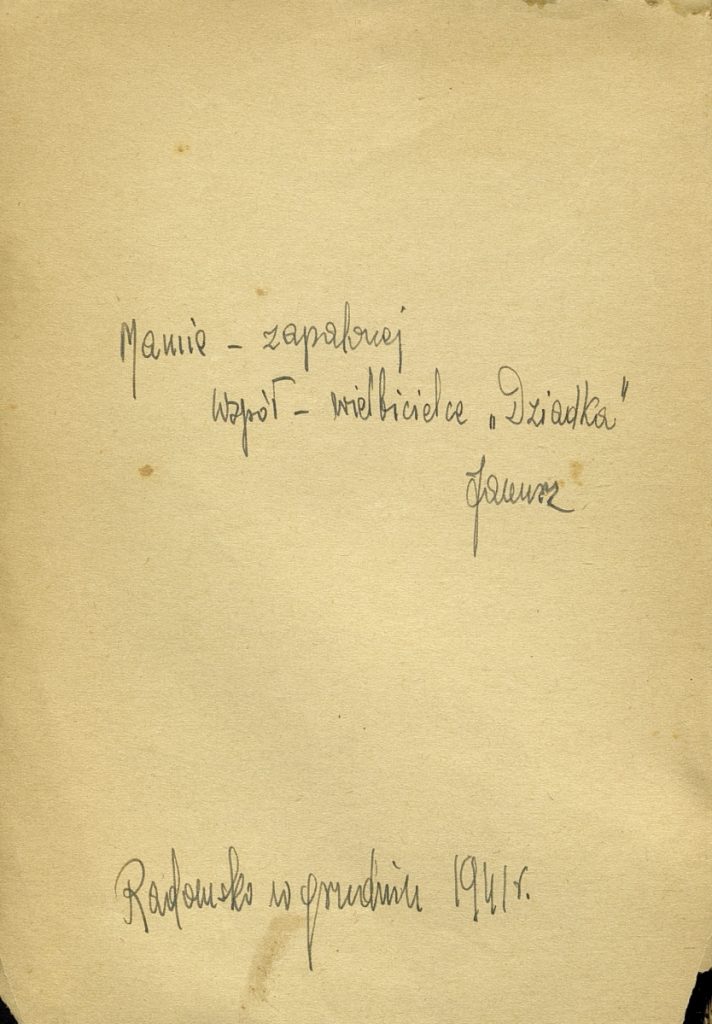 Mamie – zapalonej
Współ – wielbicielce „Dziadka”
Janusz
Radomsko w grudniu 1941 r.